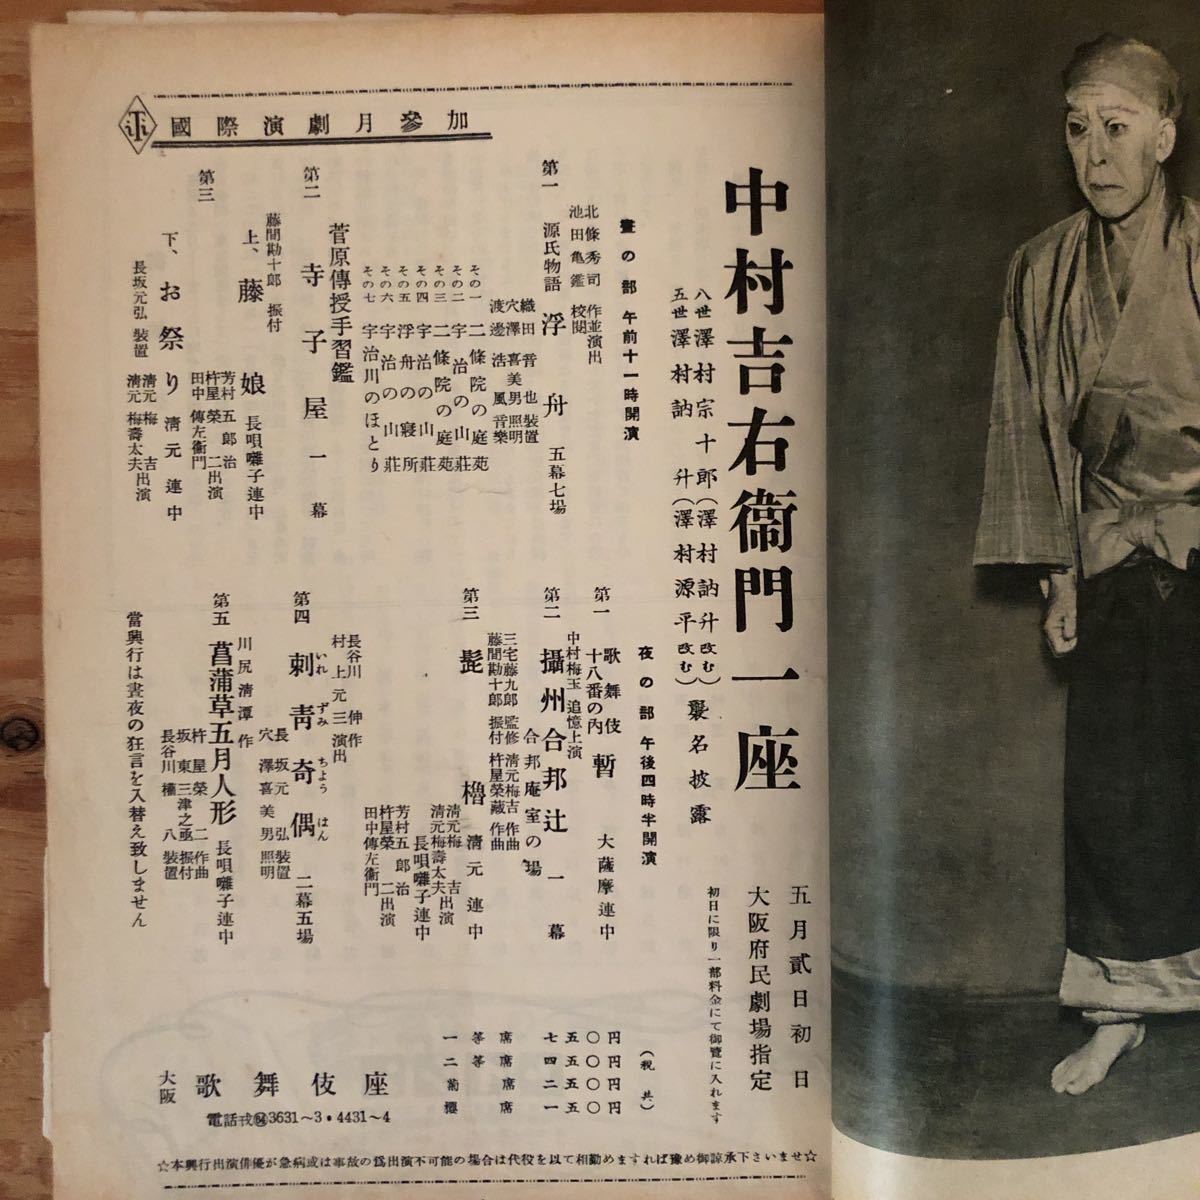 國際演劇月參加
中村吉右衞門一座
八世澤村宗十郎(澤村訥升改む)
五世澤村訥升(澤村源平改む)
襲名披露
五月貳日初日
大阪府民劇場指定
初日に限り一部料金にて御覽に入れます
晝の部 午前十一時開演
第一
北條秀司 作並演出
池田亀鑑 校閲
源氏物語 浮舟 五幕七場
織田音也 裝置
穴澤喜美男 照明
渡邊浩風 音樂
その一 二條院の庭苑
その二 宇治の山莊
その三 二條院の庭苑
その四 宇治の山莊
その五 浮舟の寢所
その六 宇治の山莊
その七 宇治川のほとり
第二
菅原傳授手習鑑
寺子屋 一幕
第三
藤間勘十郎 振付
上、藤娘 長唄囃子連中
芳村五郎治
杵屋榮二 出演
田中傳左衞門
下、お祭り 清元連中
長坂元弘 裝置
清元梅吉
清元梅壽太夫 出演
夜の部 午後四時半開演
第一
歌舞伎十八番の内 暫 大薩摩連中
中村梅玉 追憶上演
第二
攝州合邦辻 一幕
合邦庵室の場
第三
三宅藤九郎 監修 清元梅吉 作曲
藤間勘十郎 振付 杵屋榮藏 作曲
髭櫓 清元連中
清元梅吉
清元梅壽太夫 出演
長唄囃子連中
芳村五郎治
杵屋榮二 出演
田中傳左衞門
長谷川伸 作
村上元三 演出
第四
刺靑奇偶 二幕五場
いれずみちょうはん
長坂元弘 裝置
穴澤喜美男 照明
第五
川尻淸潭 作
菖蒲草五月人形 長唄囃子連中
杵屋榮二 作曲
坂東三津之丞 振付
長谷川權八 裝置
當興行は晝夜の狂言を入替え致しません
一等席 七五〇円
二等席 四五〇円
菊席 二五〇円
櫻席 一五〇円
(税共)
大阪 歌舞伎座
電話戎64 3631～3・4431～4
☆本興行出演俳優が急病或は事故の爲出演不可能の場合は代役を以て相勤めますれば豫め御諒承下さいませ☆